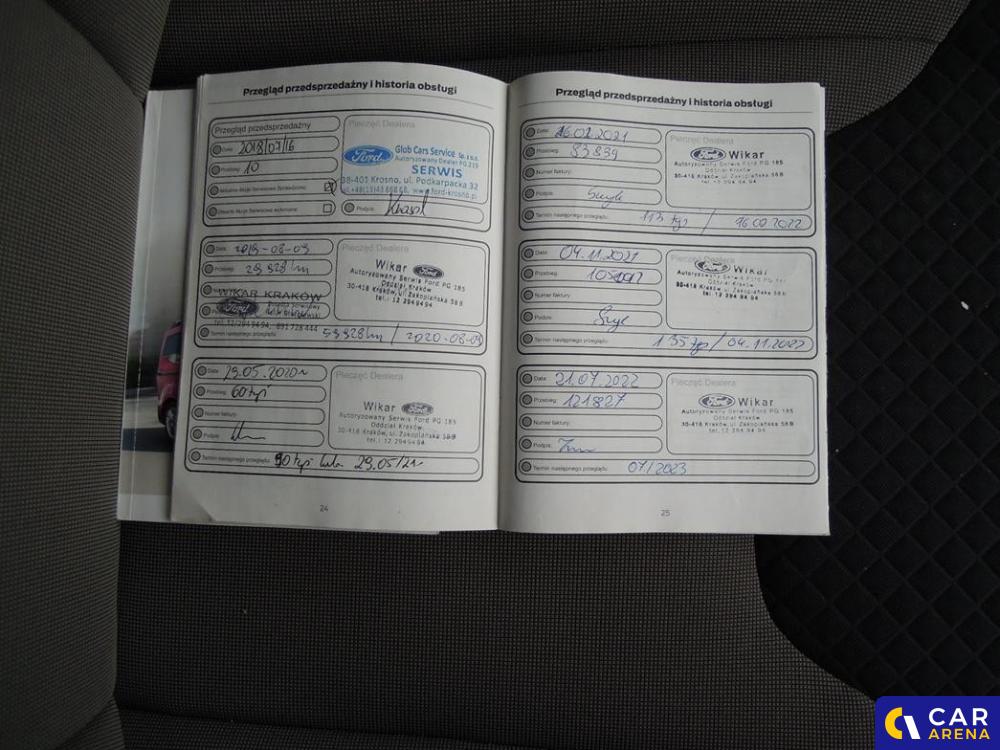 Przegląd przedsprzedażny i historia obsługi
Przegląd przedsprzedażny
Pieczęć Dealera
Data: 2018/07/16
Przebieg: 10
Ford
Glob Cars Service Sp. z o.o.
Autoryzowany Dealer PG 215
SERWIS
38-401 Krosno, ul. Podkarpacka 32
www.ford-krosno.pl
Podpis:
Pieczęć Dealera
Data: 2019-08-09
Przebieg: 29 328 km
Wikar Ford
Autoryzowany Serwis Ford PG 185
Oddział Kraków
30-418 Kraków, ul. Zakopiańska 58B
tel.: 12 294 94 94
WIKAR KRAKÓW
Ford
tel. 12/294 94 94, 691 728 444
Termin następnego przeglądu: 59328 km / 2020-08-09
Pieczęć Dealera
Data: 29.05.2020r
Przebieg: 60 tyś
Numer faktury:
Podpis:
Wikar Ford
Autoryzowany Serwis Ford PG 185
Oddział Kraków,
30-418 Kraków, ul. Zakopiańska 58B
tel.: 12 294 94 94
Termin następnego przeglądu: 90 tyś lub 29.05/21r
24
Przegląd przedsprzedażny i historia obsługi
Pieczęć Dealera
Data: 16.02.2021
Przebieg: 83839
Numer faktury:
Podpis:
Ford Wikar
Autoryzowany Serwis Ford PG 185
Oddział Kraków
30-418 Kraków, ul. Zakopiańska 58B
tel.: 12 294 94 94
Termin następnego przeglądu: 113 tyś / 16.02.2022
Data: 04.11.2021
Przebieg:
Numer faktury:
Podpis:
Ford Wikar
Autoryzowany Serwis Ford PG
Oddział Kraków
30-418 Kraków, ul. Zakopiańska 58B
Termin następnego przeglądu: 135 tyś / 04.11.2022
Pieczęć Dealera
Data: 21.07.2022
Przebieg: 121827
Numer faktury:
Podpis:
Ford Wikar
Autoryzowany Serwis Ford PG 185
Oddział Kraków
30-418 Kraków, ul. Zakopiańska 58B
tel.: 12 294 94 94
Termin następnego przeglądu: 07/2023
25
CAR
ARENA